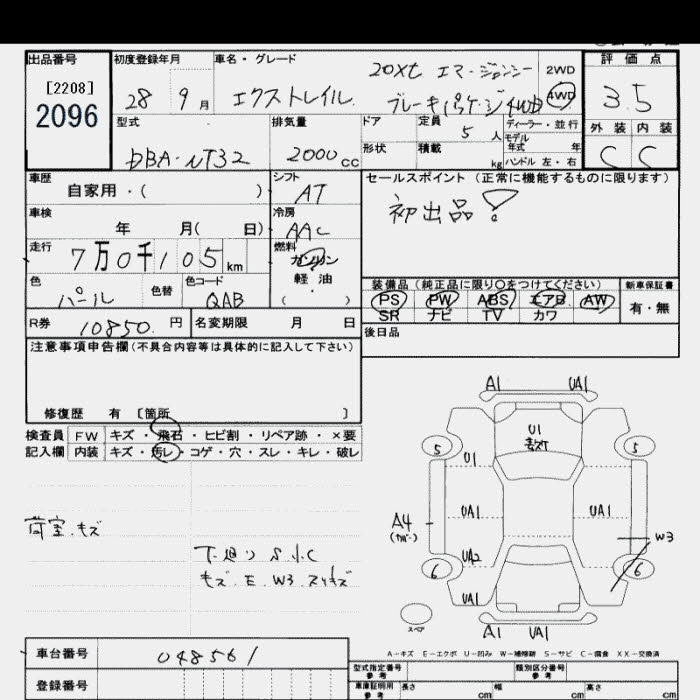 出品番号 初度登録年月 車名・グレード 評価点
[2208]
2096
28 9 月 エクストレイル 20Xt エマージェンシー
ブレーキパッケージ 4WD
2WD
4WD
3.5
型式 排気量 ドア 定員 5 人 ディーラー・並行
モデル
年式 年
外装 内装
DBA-NT32 2000 cc 形状 積載 kg ハンドル 左・右
C C
車歴 シフト セールスポイント (正常に機能するものに限ります)
自家用・( ) AT
初出品!
車検 冷房
年 月( 日) AAC
走行 燃料
7万0千105 km ガソリン
軽油
( )
色 色替 色コード
パール QAB
装備品 (純正品に限り〇をつけてください) 新車保証書
PS PW ABS エアB AW
SR ナビ TV カワ
有・無
R券 10850 円 名変期限 月 日
後日品
注意事項申告欄 (不具合内容等は具体的に記入して下さい)
修復歴 有 〔箇所 〕
検査員 FW キズ・飛石・ヒビ割・リペア跡・×要
記入欄 内装 キズ・汚レ・コゲ・穴・スレ・キレ・破レ
荷室.キズ
下廻り S.小C
キズ.E.W3.スリキズ
A1 UA1
U1
5 5
U1
UA1 UA1
A4
(カバー)
W3
UA2
6 6
UA1
スペア
A1 UA1
A-キズ E-エクボ U-凹み W-補修跡 S-サビ C-腐食 XX-交換済
車台番号 048561
登録番号
型式指定番号
参考
類別区分番号
参考
車庫証明用
参考
長さ cm 幅 cm 高さ cm